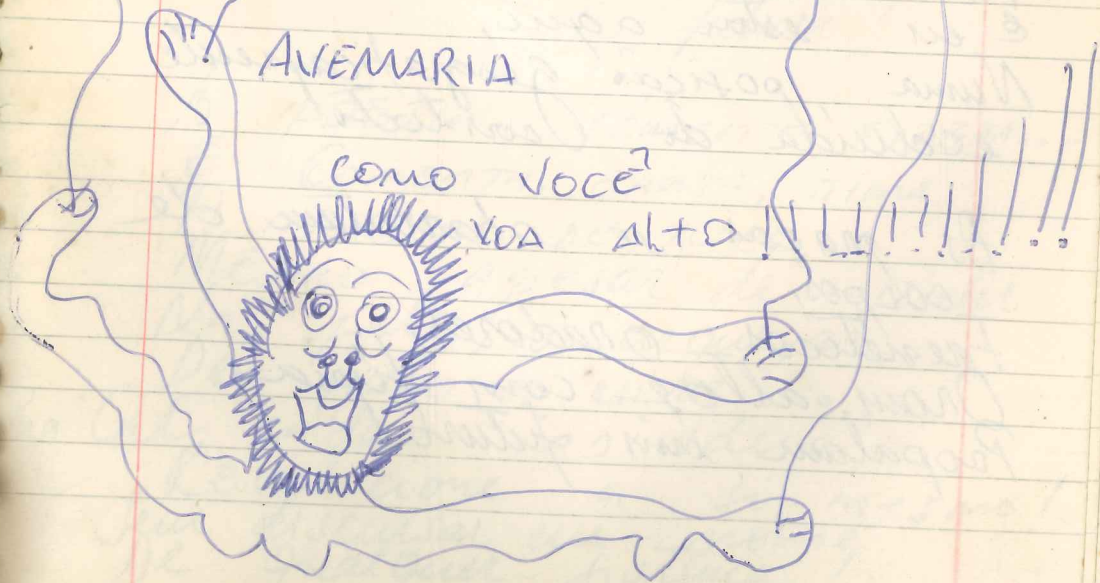 AVEMARIA
COMO VOCÊ
VOA ALTO!!!!!!!!!!!!